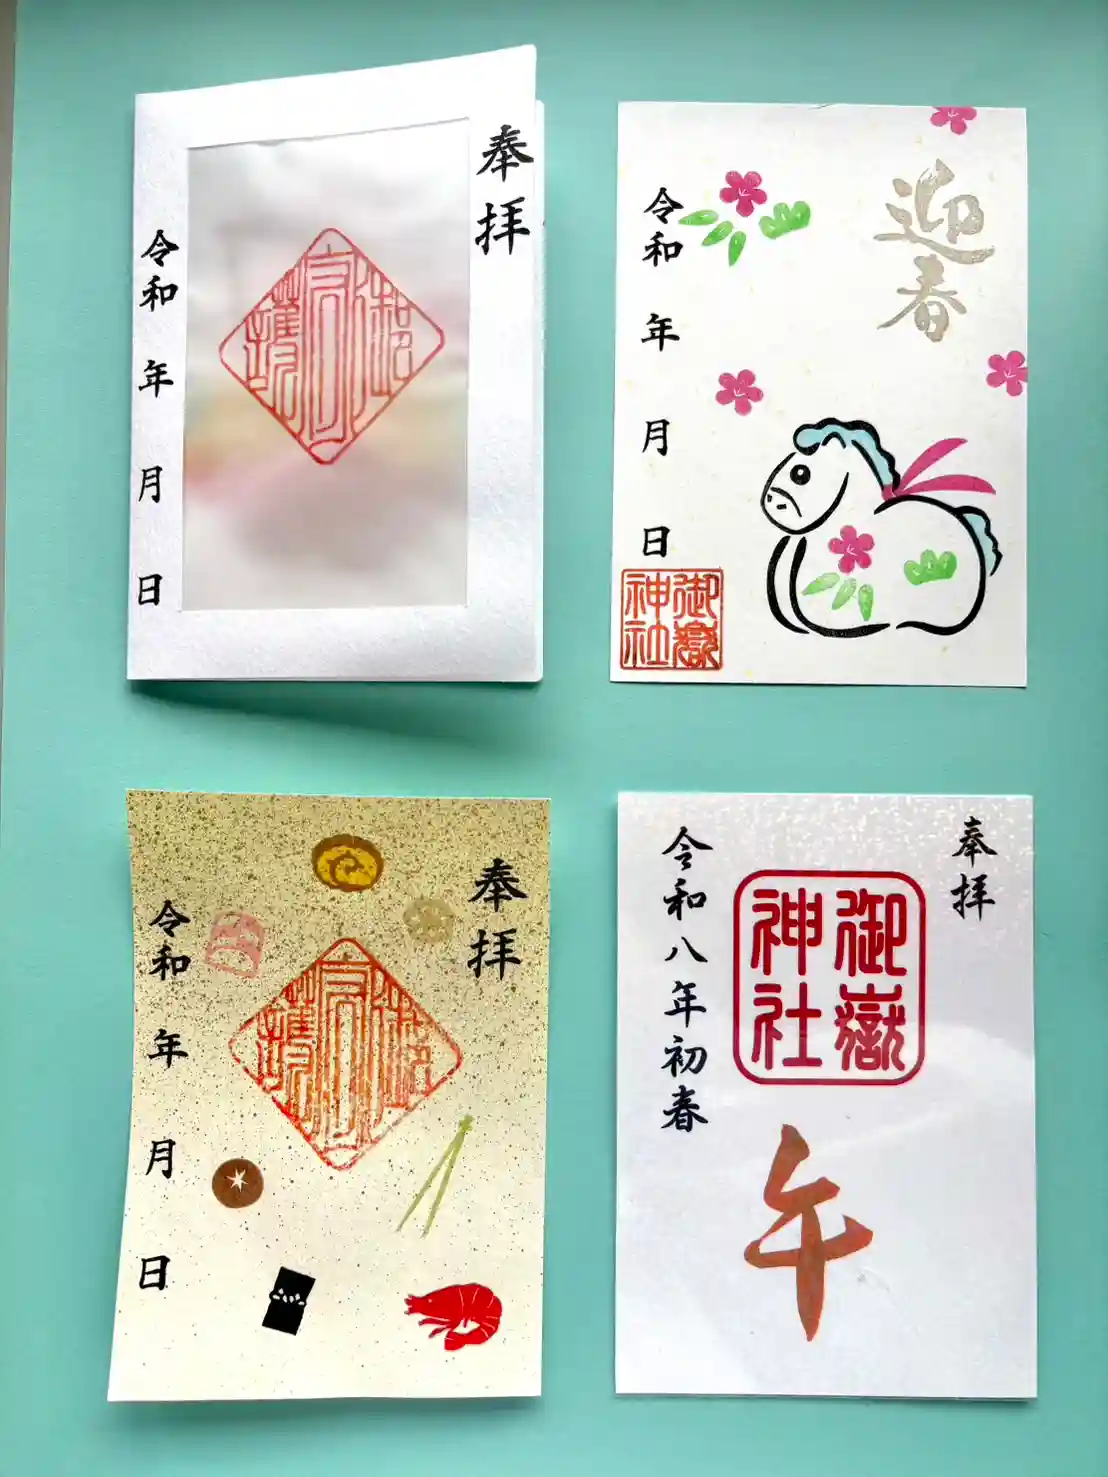 奉拝
御守護
令和 年 月 日
迎春
令和 年 月 日
御嶽神社
奉拝
御守護
令和 年 月 日
奉拝
御嶽神社
午
令和八年初春